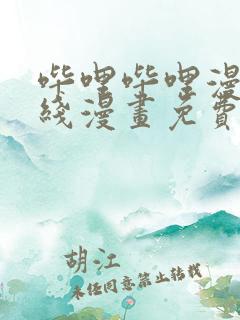 哔哩哔哩漫
线漫画免费
胡江
未经同意禁止转载